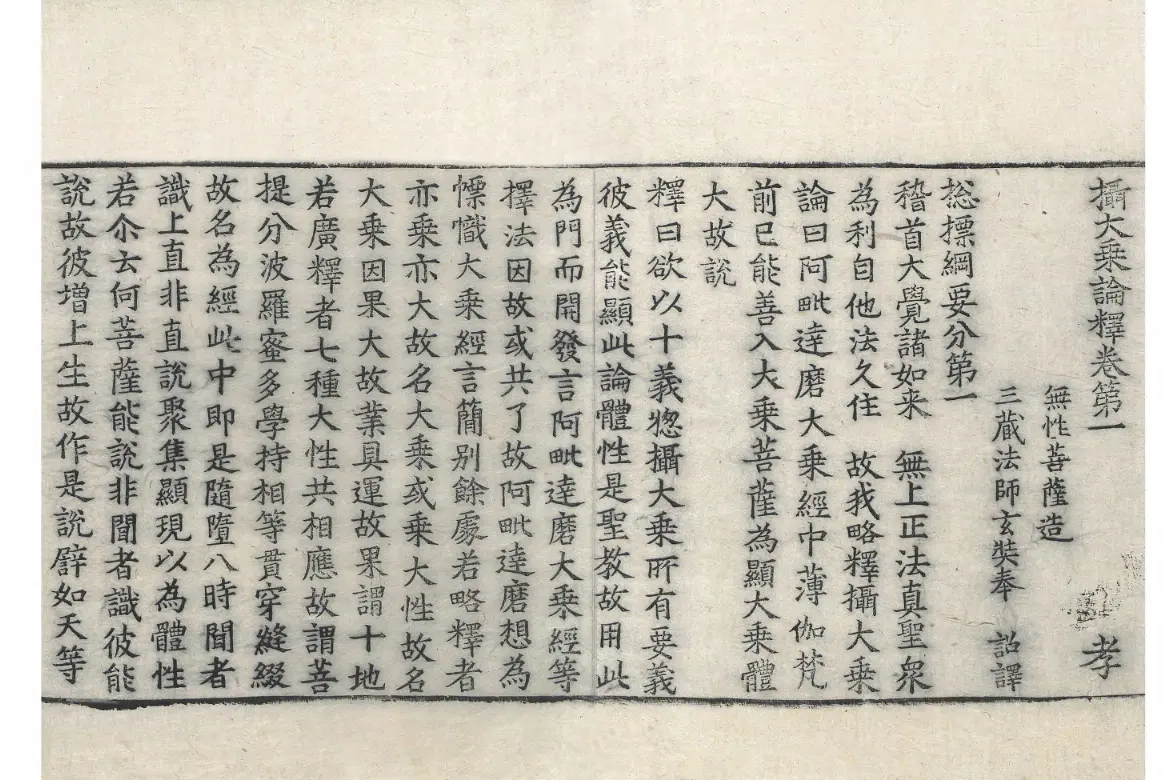 攝大乘論釋卷第一 孝
無性菩薩造
三藏法師玄奘奉 詔譯
揔摽綱要分第一
稽首大覺諸如来 無上正法真聖衆
為利自他法久住 故我略釋攝大乘
論曰阿毗達磨大乘經中薄伽梵
前已能善入大乘菩薩為顯大乘體
大故說
釋曰欲以十義揔攝大乘所有要義
彼義能顯此論體性是聖教故用此
為門而開發言阿毗達磨大乘經等
擇法因故或共了故阿毗達磨想為
慓幟大乘經言簡別餘處若略釋者
亦乘亦大故名大乘或乘大性故名
大乘因果大故業具運故果謂十地
若廣釋者七種大性共相應故謂菩
提分波羅蜜多學持相等貫穿縫綴
故名為經此中即是隨墮八時聞者
識上直非直說聚集顯現以為體性
若尒云何菩薩能說非聞者識彼能
說故彼增上生故作是說譬如天等